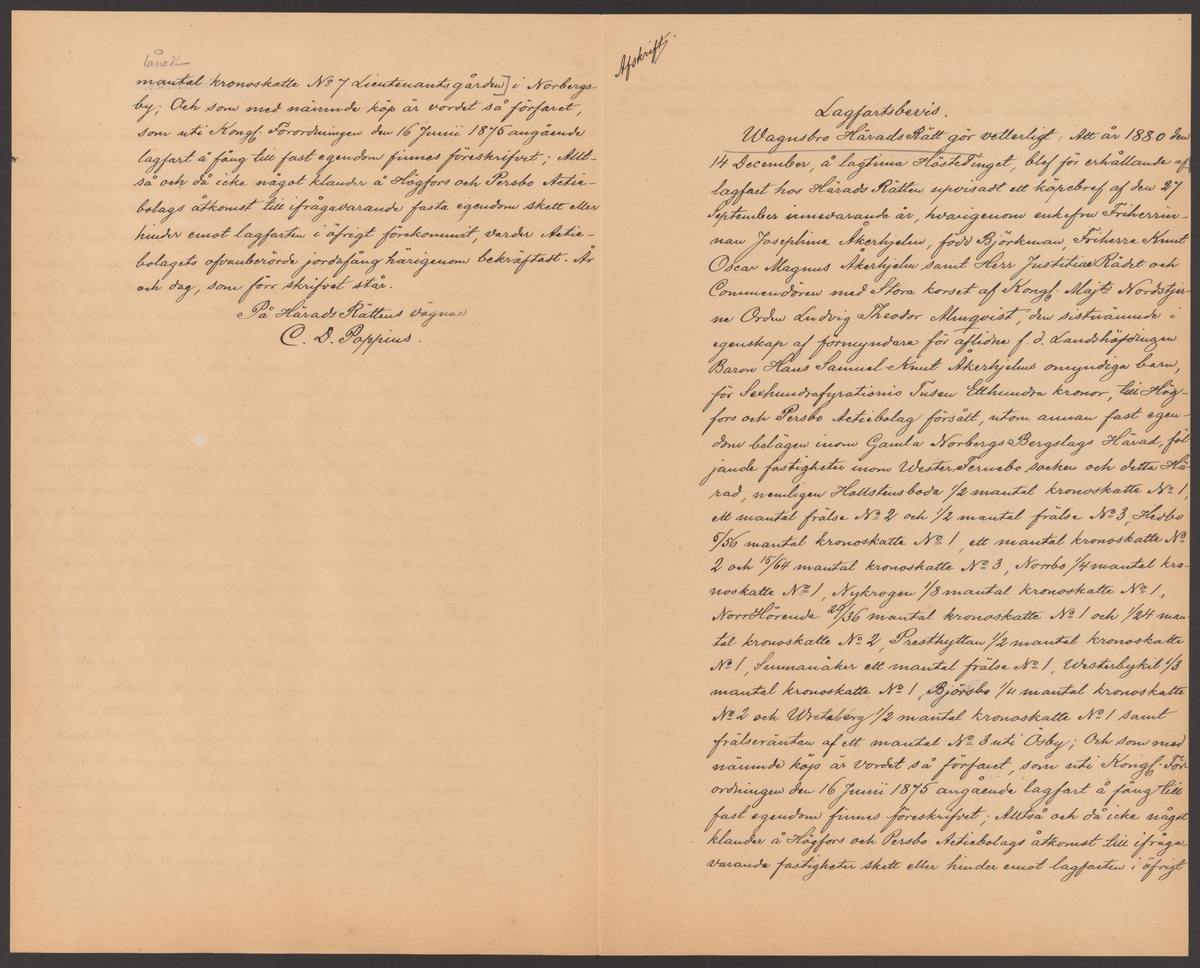 lånadt
mantal kronoskatte No 7 Lieutenantsgården] i Norbergs-
by; Och som med nämnde köp är vordet så förfaret,
som uti Kongl. Förordningen den 16 Junii 1875 angående
lagfart å fång till fast egendom finnes föreskrifvet; Allt-
så och då icke något klander å Högfors och Persbo Actie-
bolags åtkomst till ifrågavarande fasta egendom skett eller
hinder emot lagfarten i öfrigt förekommit, varder Actie-
bolagets ofvanberörde jordafång härigenom bekräftadt. År
och dag, som förr skrifvet står.
På Härads Rättens vägnar
C. D. Poppius.
Afskrift.
Lagfartsbevis.
Wagnsbro Härads Rätt gör vetterligt: Att år 1880 den
14 December, å lagtima HösteTinget, blef för erhållande af
lagfart hos Härads Rätten uppvisadt ett köpebref af den 27
September innevarande år, hvarigenom enkefru Friherrin-
nan Josephine Åkerhjelm, född Björkman, Friherre Knut
Oscar Magnus Åkerhjelm samt Herr JustitiæRådet och
Commendören med Stora korset af Kongl. Majts Nordstjer-
ne Orden Ludvig Theodor Almqvist, den sistnämnde i
egenskap af förmyndare för aflidne f. d. Landshöfdingen
Baron Hans Samuel Knut Åkerhjelms omyndiga barn,
för Sexhundrafyrationio Tusen Etthundra kronor, till Hög-
fors och Persbo Actiebolag försålt, utom annan fast egen-
dom belägen inom Gamla Norbergs Bergslags Härad, föl
jande fastigheter inom Wester Fernebo socken och detta Hä-
rad, nemligen Hallstensboda 1/2 mantal kronoskatte No 1,
ett mantal frälse No 2 och 1/2 mantal frälse No 3, Hedbo
5/56 mantal kronoskatte No 1, ett mantal kronoskatte No
2 och 15/64 mantal kronoskatte No 3, Norrbo 1/4 mantal kro-
noskatte No 1, Nykrogen 1/8 mantal kronoskatte No 1,
NorrHörende 29/36 mantal kronoskatte No 1 och 1/24 man-
tal kronoskatte No 2, Presthyttan 1/2 mantal kronoskatte
No 1, Sunnanåker ett mantal frälse No 1, Westerbykil 1/3
mantal kronoskatte No 1, Björsbo 1/4 mantal kronoskatte
No 2 och Wretaberg 1/2 mantal kronoskatte No 1 samt
frälseräntan af ett mantal No 3 uti Ösby; Och som med
nämnde köp är vordet så förfaret, som uti Kongl. För
ordningen den 16 Junii 1875 angående lagfart å fång till
fast egendom finnes föreskrifvet; Alltså och då icke något
klander å Högfors och Persbo Actiebolags åtkomst till ifråga
varande fastigheter skett eller hinder emot lagfarten i öfrigt